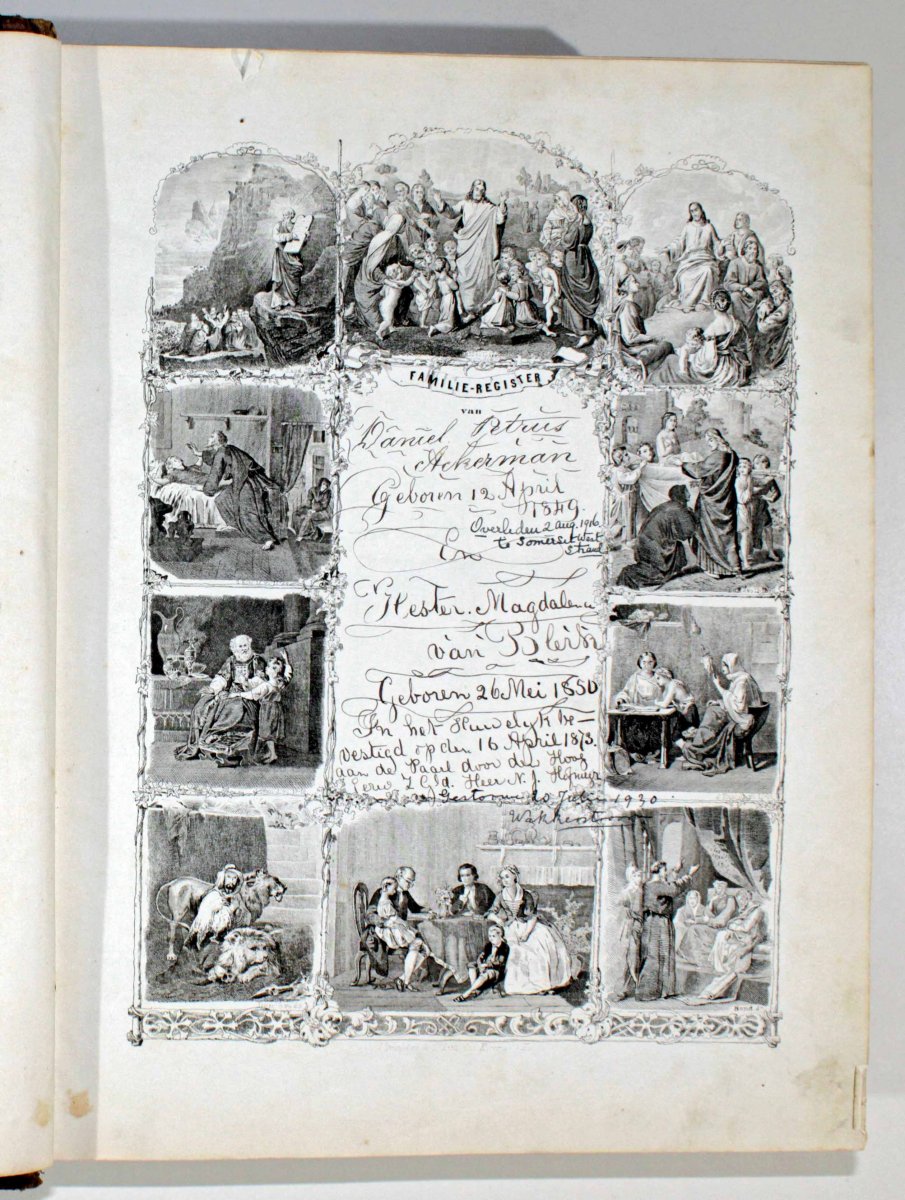 FAMILIE-REGISTER
van
Daniel Petrus
Ackerman
Geboren 12 April
1849
Overleden 2 Aug. 1916
te Somerset West
Strand
En
Hester Magdalena
van Blerk
Geboren 26 Mei 1850
In het Huwelyk be-
vestigd op den 16 April 1873.
aan de Paarl door den Hoog
Eerw. Z. G. d. Heer N. J. Hofmeyr
Gestorven 20 Julie 1930
Wakkerstroom